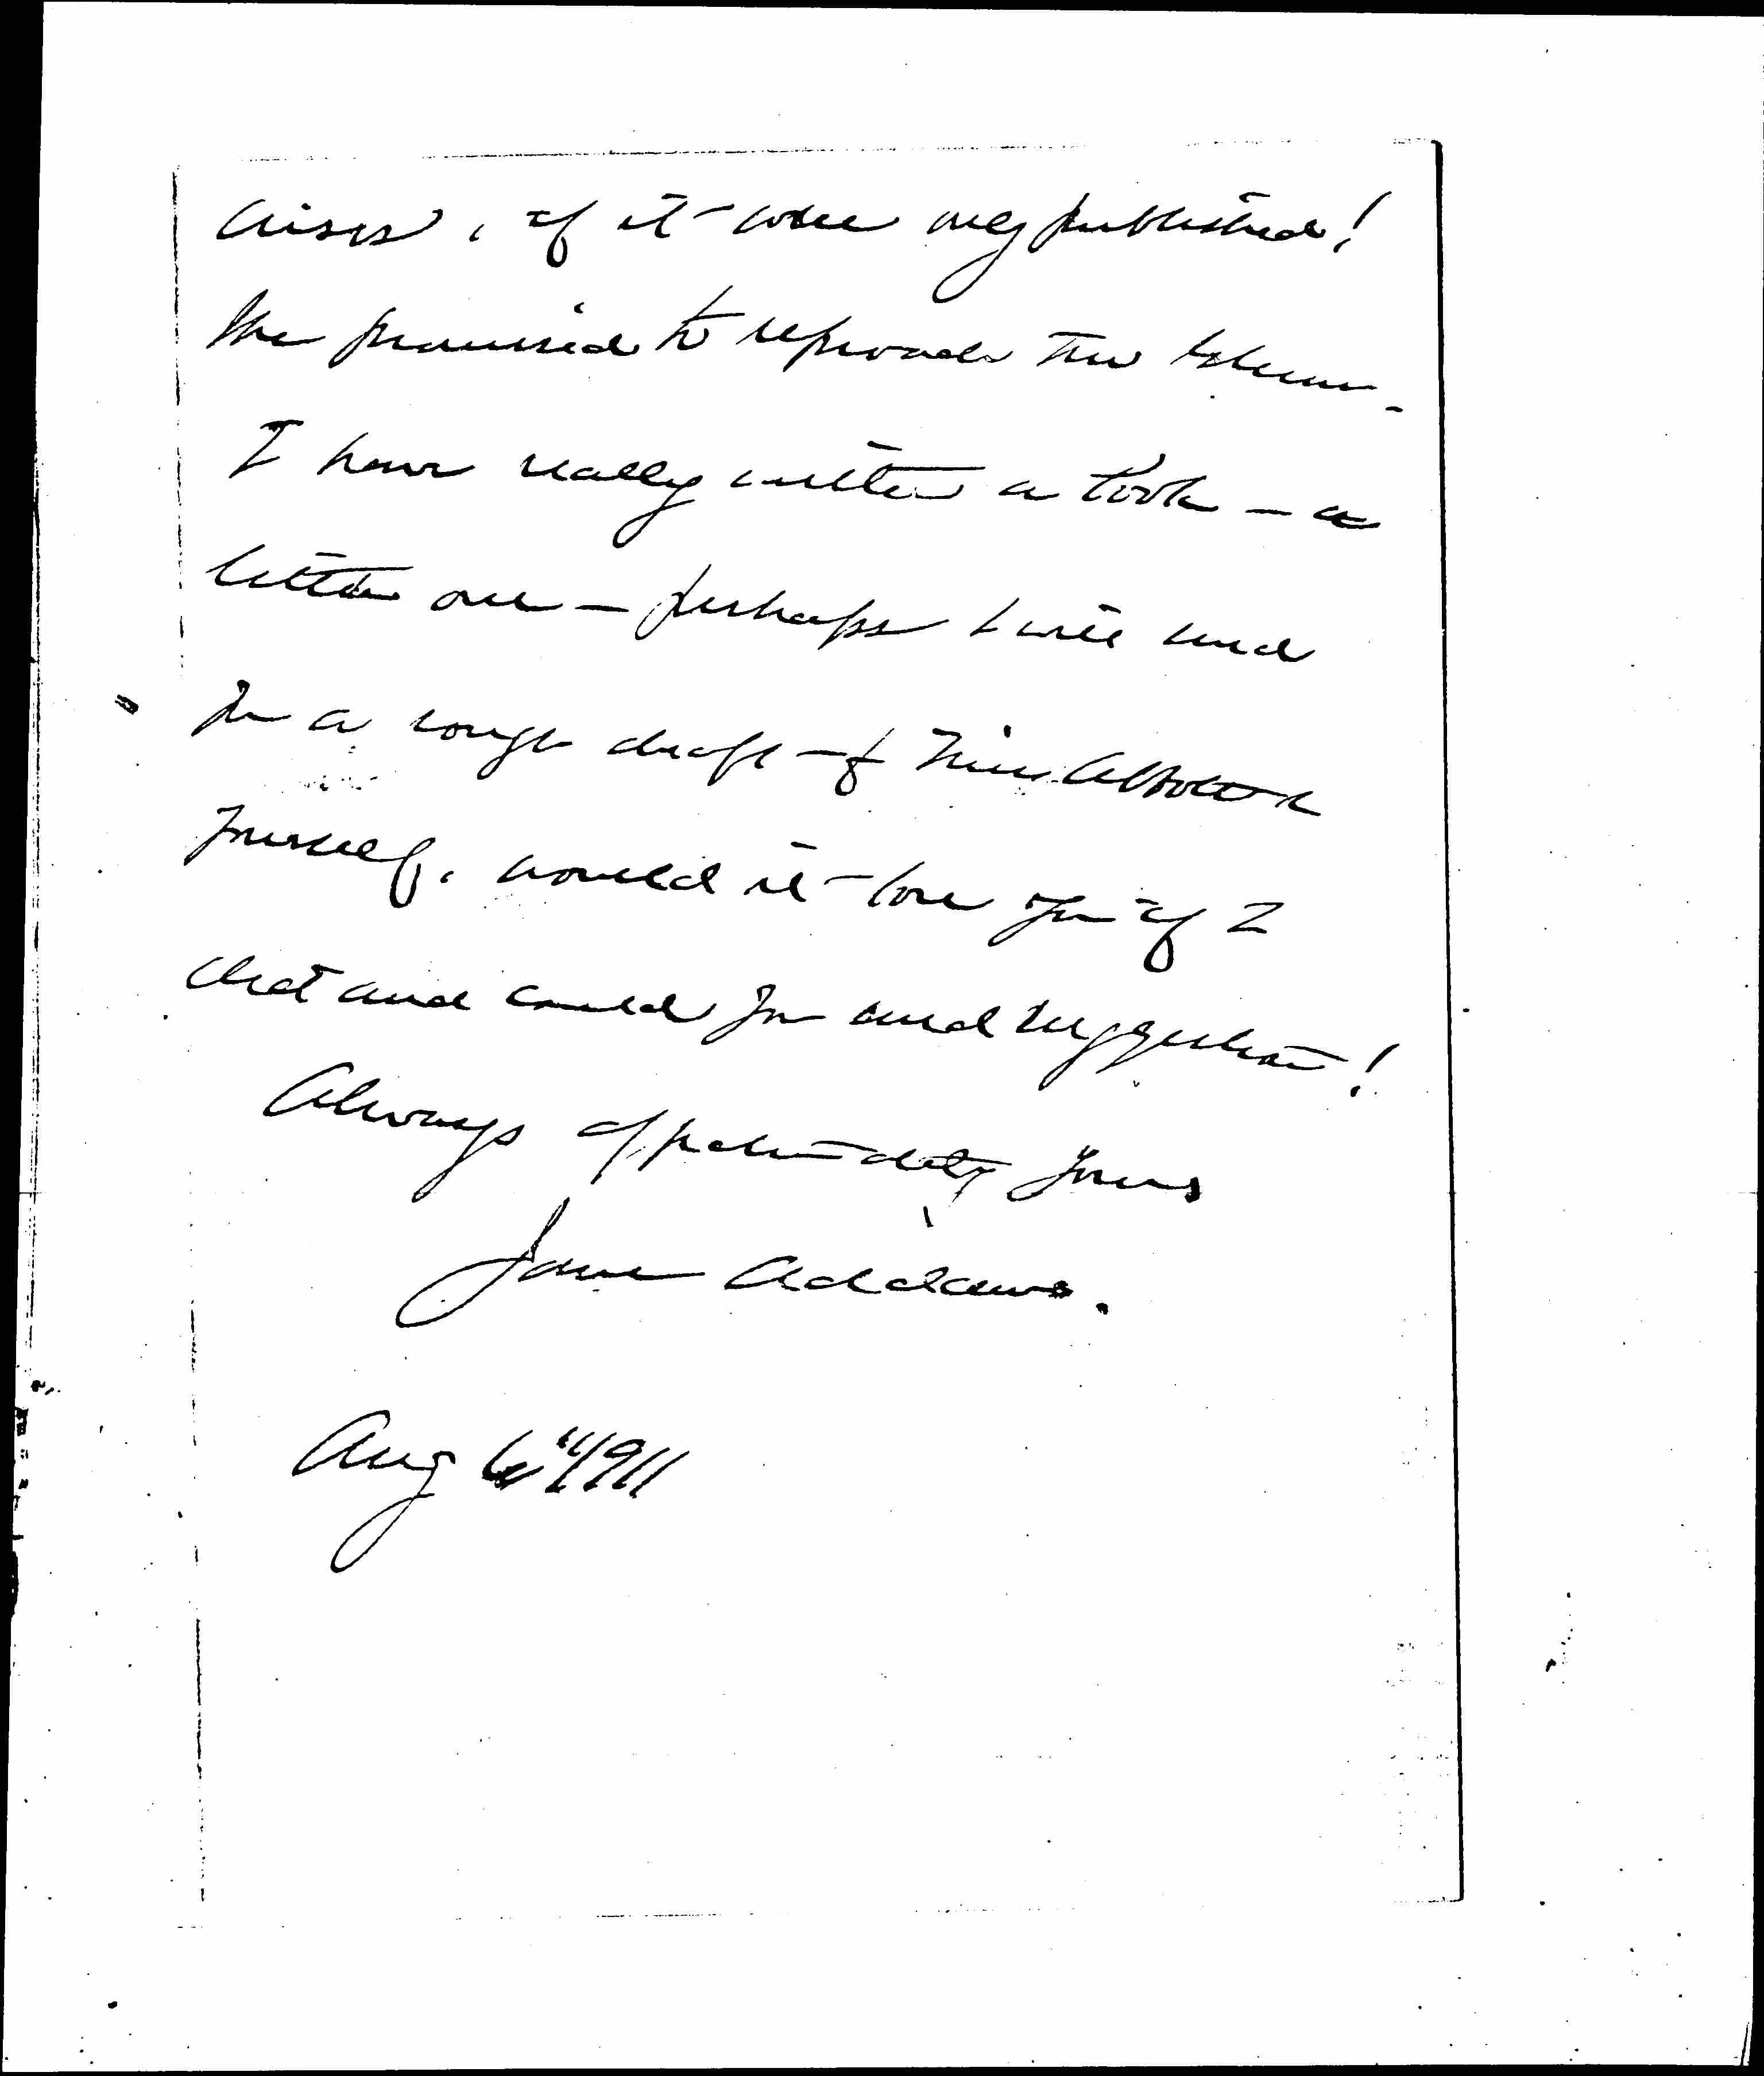 crises, if it were only published!
She promised to the
I have really written a book – a
little one – perhaps I will send
you a rough draft of Miss Abbott &
yourself, would it bore you if I
did and could you send suggestions!
Always affectionately yours
Jane Addams.
Aug 6" 1911